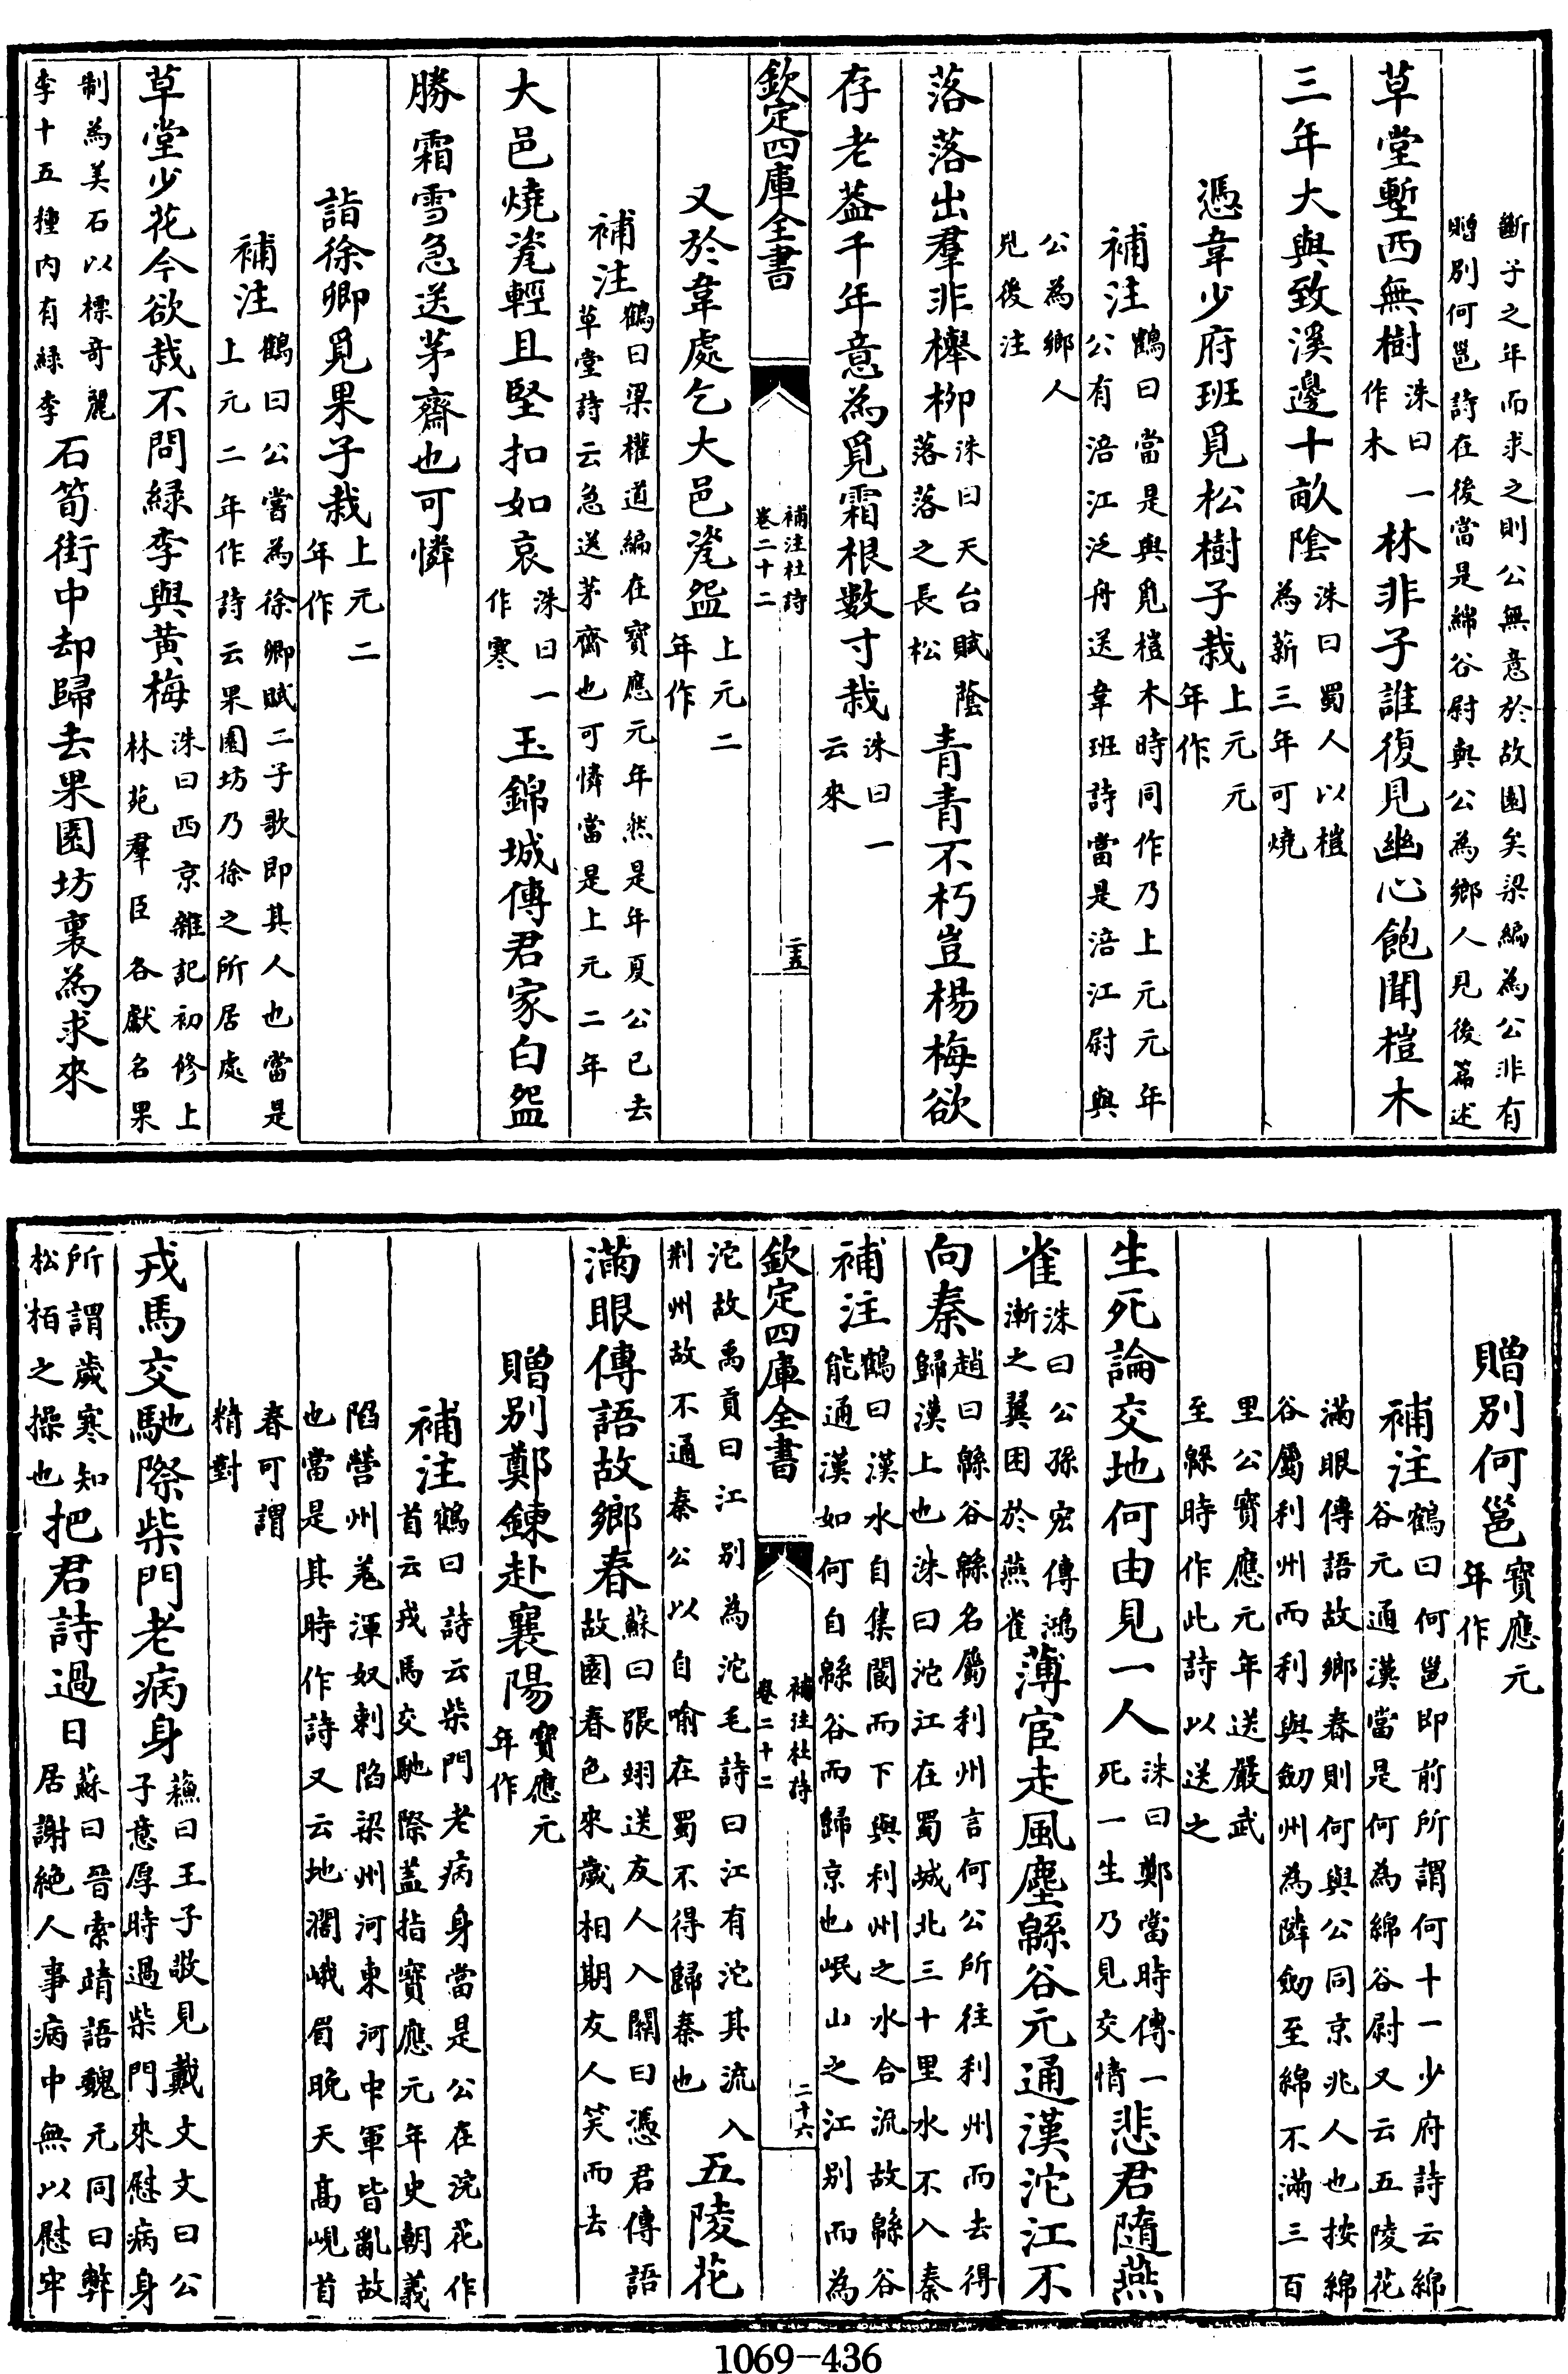 斷子之年而求之則公無意於故園矣梁編為公非有
贈別何邕詩在後當是綿谷尉與公為鄉人見後篇述
草堂塹西無樹洙曰一作木林非子誰復見幽心飽聞榿木
三年大與致溪邊十畝陰洙曰蜀人以榿為薪三年可燒
憑韋少府班覓松樹子栽上元元年作
補注鶴曰當是與覓榿木時同作乃上元元年
公有涪江泛舟送韋班詩當是涪江尉與
公為鄉人
見後注
落落出羣非櫸柳洙曰天台賦蔭落落之長松青青不朽豈楊梅欲
存老蓋千年意為覓霜根數寸栽洙曰一云來
欽定四庫全書
補注杜詩
卷二十二
二五
又於韋處乞大邑瓷盌上元二年作
補注鶴曰梁權道編在寶應元年然是年夏公已去
草堂詩云急送茅齋也可憐當是上元二年
大邑燒瓷輕且堅扣如哀洙曰一作寒玉錦城傳君家白盌
勝霜雪急送茅齋也可憐
詣徐卿覓果子栽上元二年作
補注鶴曰公嘗為徐卿賦二子歌即其人也當是
上元二年作詩云果園坊乃徐之所居處
草堂少花今欲栽不問綠李與黃梅洙曰西京雜記初修上林苑羣臣各獻名果
制為美石以標奇麗李十五種內有綠李石筍街中却歸去果園坊裏為求來
贈別何邕寶應元年作
補注鶴曰何邕即前所謂何十一少府詩云綿
谷元通漢當是何為綿谷尉又云五陵花
滿眼傳語故鄉春則何與公同京兆人也按綿
谷屬利州而利與劒州為隣劒至綿不滿三百
里公寶應元年送嚴武
至緜時作此詩以送之
生死論交地何由見一人洙曰鄭當時傳一死一生乃見交情悲君隨燕
雀洙曰公孫宏傳鴻漸之翼困於燕雀薄宦走風塵緜谷元通漢沱江不
向秦趙曰緜谷緜名屬利州言何公所往利州而去得歸漢上也洙曰沱江在蜀城北三十里水不入秦
補注鶴曰漢水自集閬而下與利州之水合流故緜谷
能通漢如何自緜谷而歸京也岷山之江別而為
欽定四庫全書
補注杜詩
卷二十二
二十六
沱故禹貢曰江別為沱毛詩曰江有沱其流入
荆州故不通秦公以自喻在蜀不得歸秦也五陵花
滿眼傳語故鄉春蘇曰張翊送友人入關曰憑君傳語故園春色來歲相期友人笑而去
贈別鄭鍊赴襄陽寶應元年作
補注鶴曰詩云柴門老病身當是公在浣花作
首云戎馬交馳際蓋指寶應元年史朝義
陷營州羌渾奴剌陷梁州河東河中軍皆亂故
也當是其時作詩又云地濶峨眉晚天高峴首
春可謂
精對
戎馬交馳際柴門老病身蘓曰王子敬見戴文文曰公子意厚時過柴門來慰病身
所謂歲寒知松栢之操也把君詩過日蘇曰晉索靖語魏元同曰弊居謝絶人事病中無以慰牢
1069-436